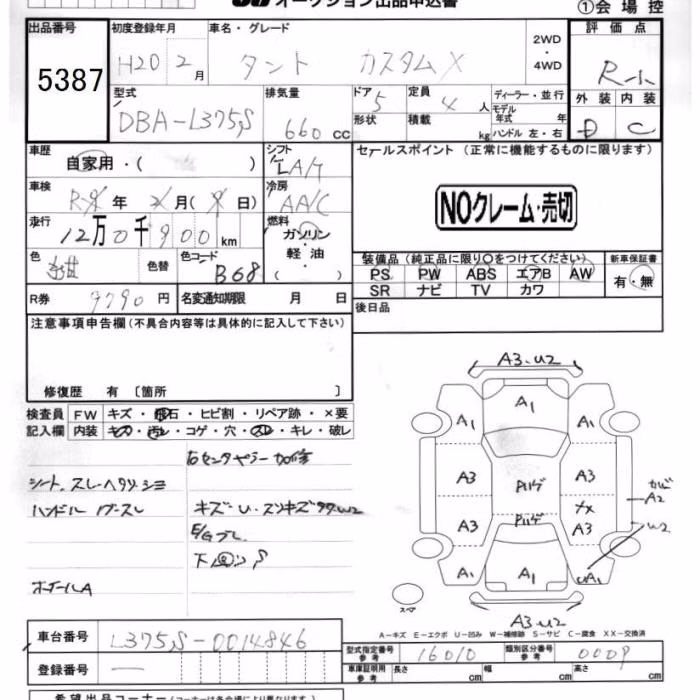 オークション出品申込書
①会場控
出品番号 初度登録年月 車名・グレード 2WD ・4WD 評価点
5387 H20 2月 タント カスタムX R-小
型式 排気量 ドア 定員 ディーラー・並行 外装 内装
DBA-L375S 660cc 5 4人 モデル年式 年 D C
形状 積載 kg ハンドル 左・右
車歴 シフト セールスポイント (正常に機能するものに限ります)
自家用・( ) IA/T
車検 冷房 NOクレーム・売切
年 月( 日) AA/C
走行 燃料
12万0千900km ガソリン・軽油・( )
色 色替 色コード B68
装備品 (純正品に限り○をつけてください) 新車保証書
PS PW ABS エアB AW 有・無
SR ナビ TV カワ
R券 9790円 名変通知期限 月 日
後日品
注意事項申告欄 (不具合内容等は具体的に記入して下さい)
修復歴 有 〔箇所 〕
検査員 FW キズ・飛石・ヒビ割・リペア跡・×要
記入欄 内装 キズ・汚レ・コゲ・穴・スレ・キレ・破レ
シート、スレヘタリシミ
ハンドル
キズ・U・
E/G
ホイールA
A3.U2
A1
A1 A1
A3 A3
A2
A3 A3
W2
A1 A1 UA1
スペア
A3.U2
A-キズ E-エクボ U-凹み W-補修跡 S-サビ C-腐食 XX-交換済
車台番号 L375S-0014846
型式指定番号 参考 16010 類別区分番号 参考 0009
登録番号 —
車庫証明用 参考 長さ cm 幅 cm 高さ cm
希望出品コーナー(コーナーは各会場により異なります)